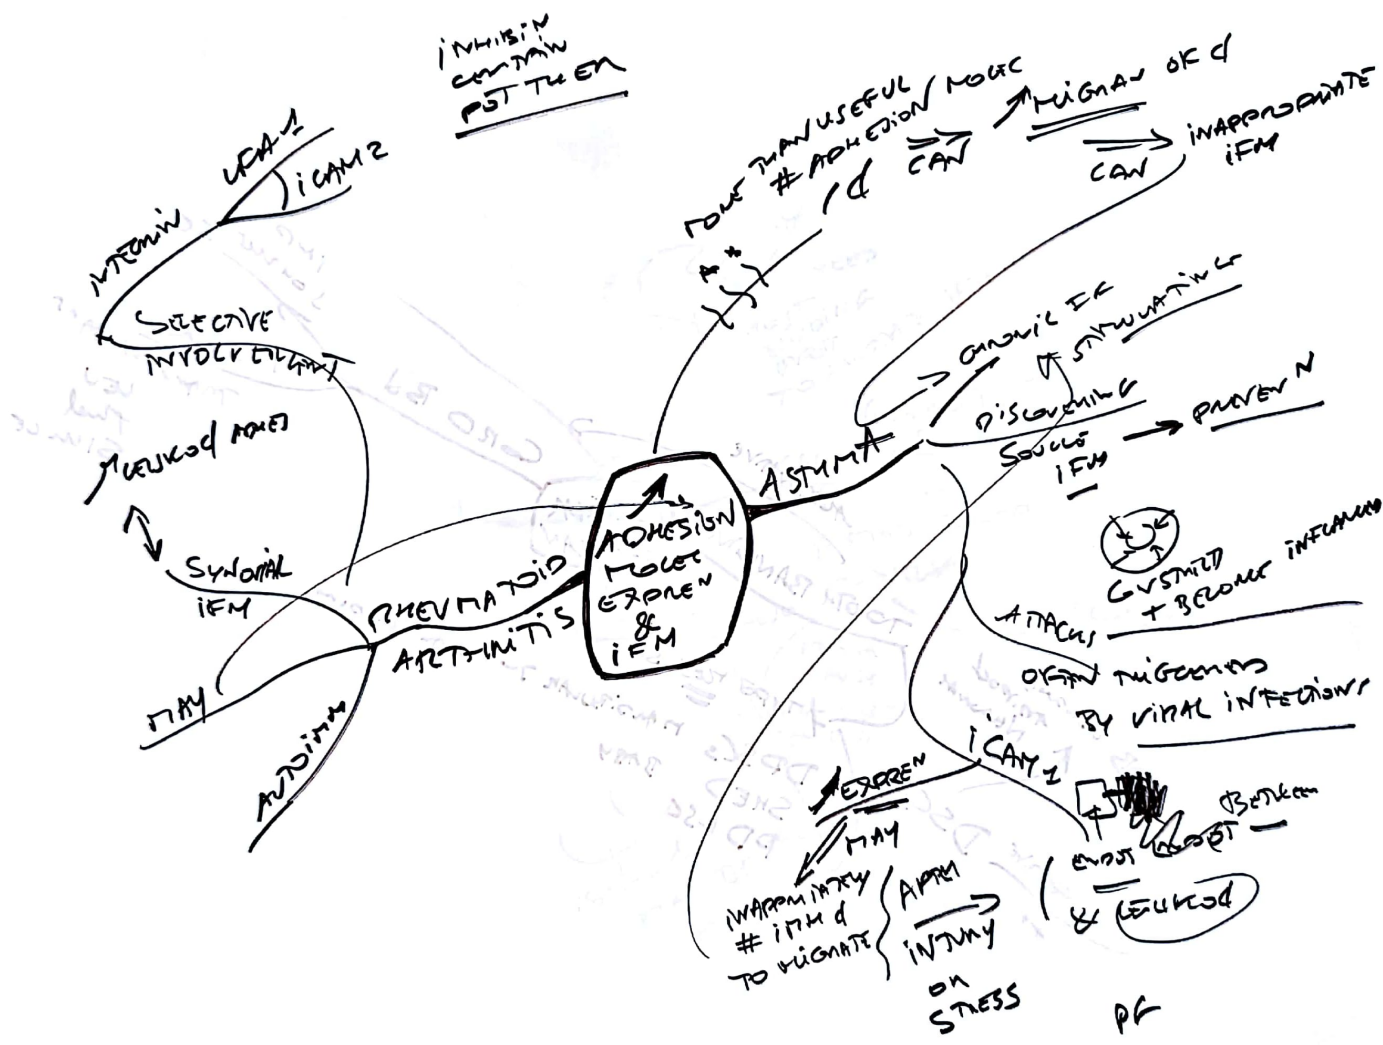 INHIBIN
CERTAIN
POT THER
LFA-1
ICAM 2
INTEGRIN
SELECTIVE
INVOLVEMENT
LEUKOd ADHES
SYNOVIAL
iFM
RHEUMATOID
ARTHRITIS
MAY
AUTOIMM
ADHESION
MOLEC
EXPRE N
&
iFM
MORE THAN USEFUL
# ADHESION MOLEC
/ d
CAN
MIGRAN OF d
CAN
INAPPROPRIATE
iFM
ASTHMA
CHRONIC IF
STIMULATING
DISCOVERING
SOURCE
iFM
PREVEN N
CONSTRICTED
+ BECOME INFLAMED
ATTACKS
OFTEN TRIGGERED
BY VIRAL INFECTIONS
iCAM 1
EXPRE N
MAY
INAPPROPRIATELY
# IMM d
TO MIGRATE
AFTER
INJURY
OR
STRESS
BETWEEN
ENDOT
& LEUKOd